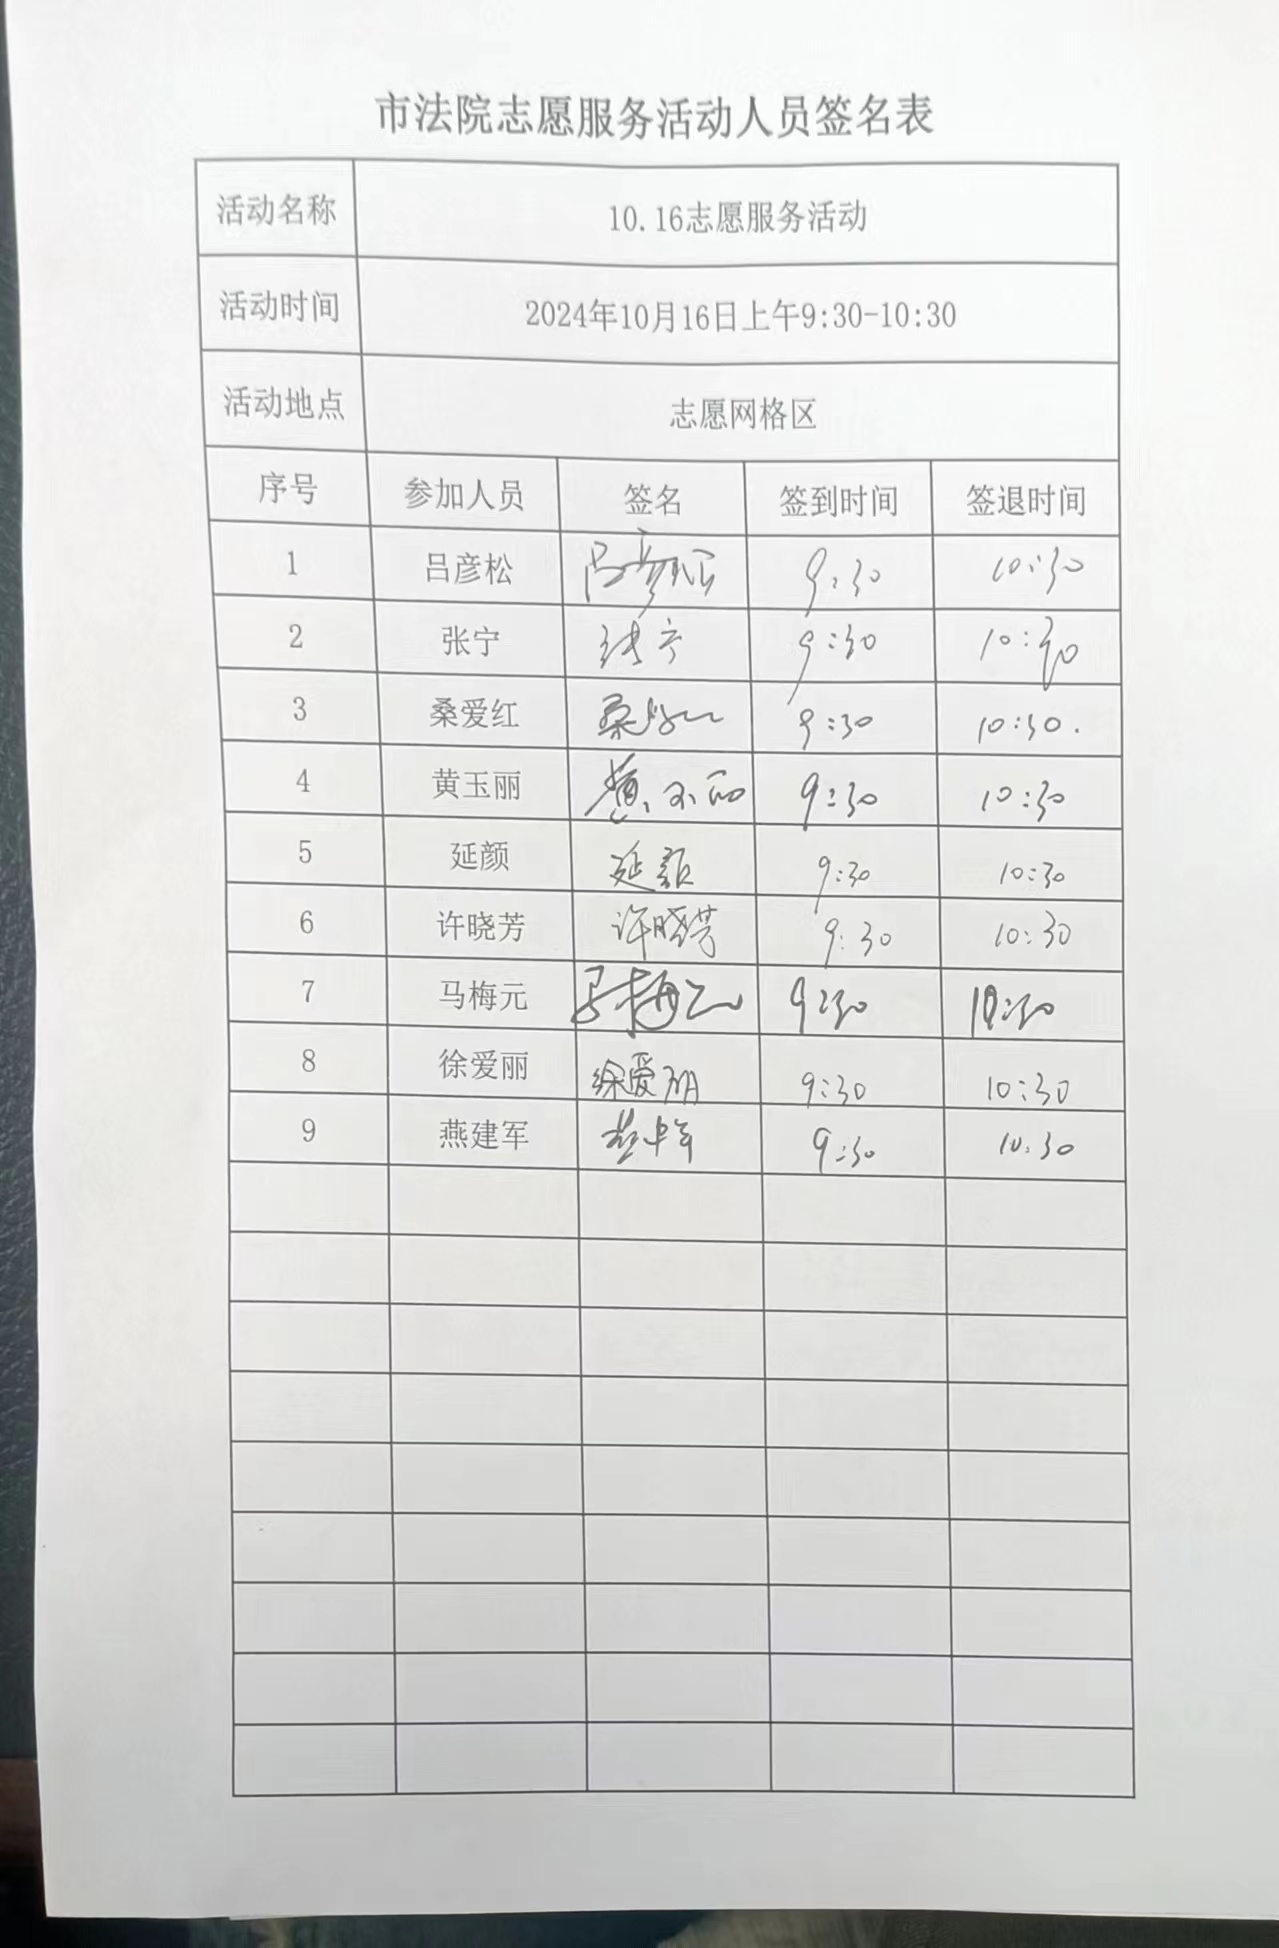 市法院志愿服务活动人员签名表
活动名称 10.16志愿服务活动
活动时间 2024年10月16日上午9:30-10:30
活动地点 志愿网格区
序号 参加人员 签名 签到时间 签退时间
1 吕彦松 吕彦松 9:30 10:30
2 张宁 张宁 9:30 10:30
3 桑爱红 桑爱红 9:30 10:30.
4 黄玉丽 黄玉丽 9:30 10:30
5 延颜 延颜 9:30 10:30
6 许晓芳 许晓芳 9:30 10:30
7 马梅元 马梅元 9:30 10:30
8 徐爱丽 徐爱丽 9:30 10:30
9 燕建军 燕建军 9:30 10:30